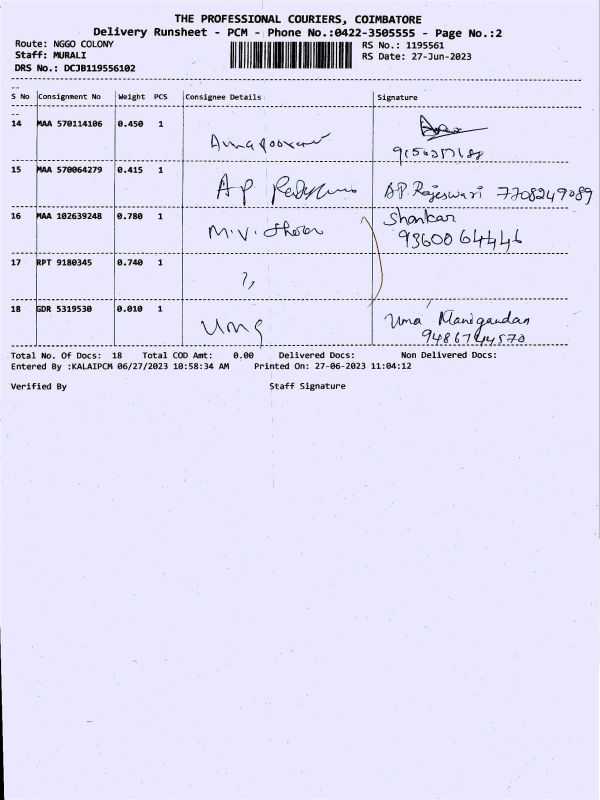 THE PROFESSIONAL COURIERS, COIMBATORE
Delivery Runsheet - PCM - Phone No.:0422-3505555 - Page No.:2
Route: NGGO COLONY
Staff: MURALI
DRS No.: DCJB119556102
RS No.: 1195561
RS Date: 27-Jun-2023
S No Consignment No Weight PCS Consignee Details Signature
14 MAA 570114106 0.450 1
15 MAA 570064279 0.415 1 A P A.P. Rajeswari 7708249089
16 MAA 102639248 0.780 1 M.V. Shankar
9360064446
17 RPT 9180345 0.740 1
18 GDR 5319530 0.010 1 Uma Uma Manigandan
9486744570
Total No. Of Docs: 18 Total COD Amt: 0.00 Delivered Docs: Non Delivered Docs:
Entered By :KALAIPCM 06/27/2023 10:58:34 AM Printed On: 27-06-2023 11:04:12
Verified By Staff Signature